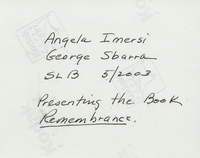 Angela Imersi
George Sbarra
SLB 5/2003
Presenting the Book
Remembrance.